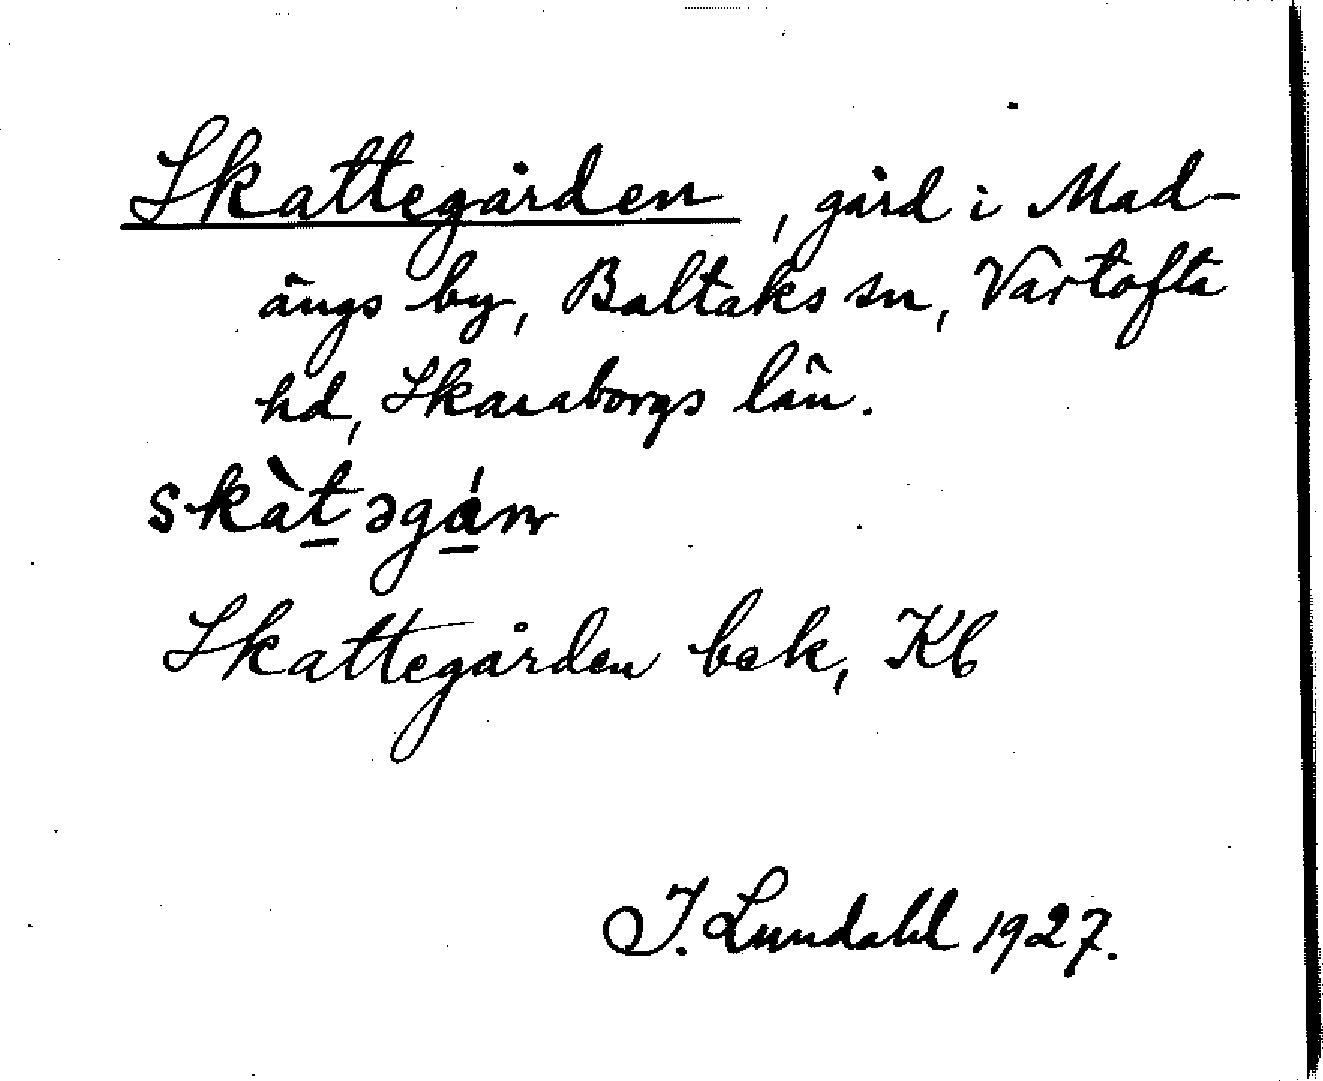 Skattegården, gård i Mad-
ängs by, Baltaks sn, Vartofta
hd, Skaraborgs län.
skàt̲əgá̲rn
Skattegården bek, Kb
I. Lundahl 1927.